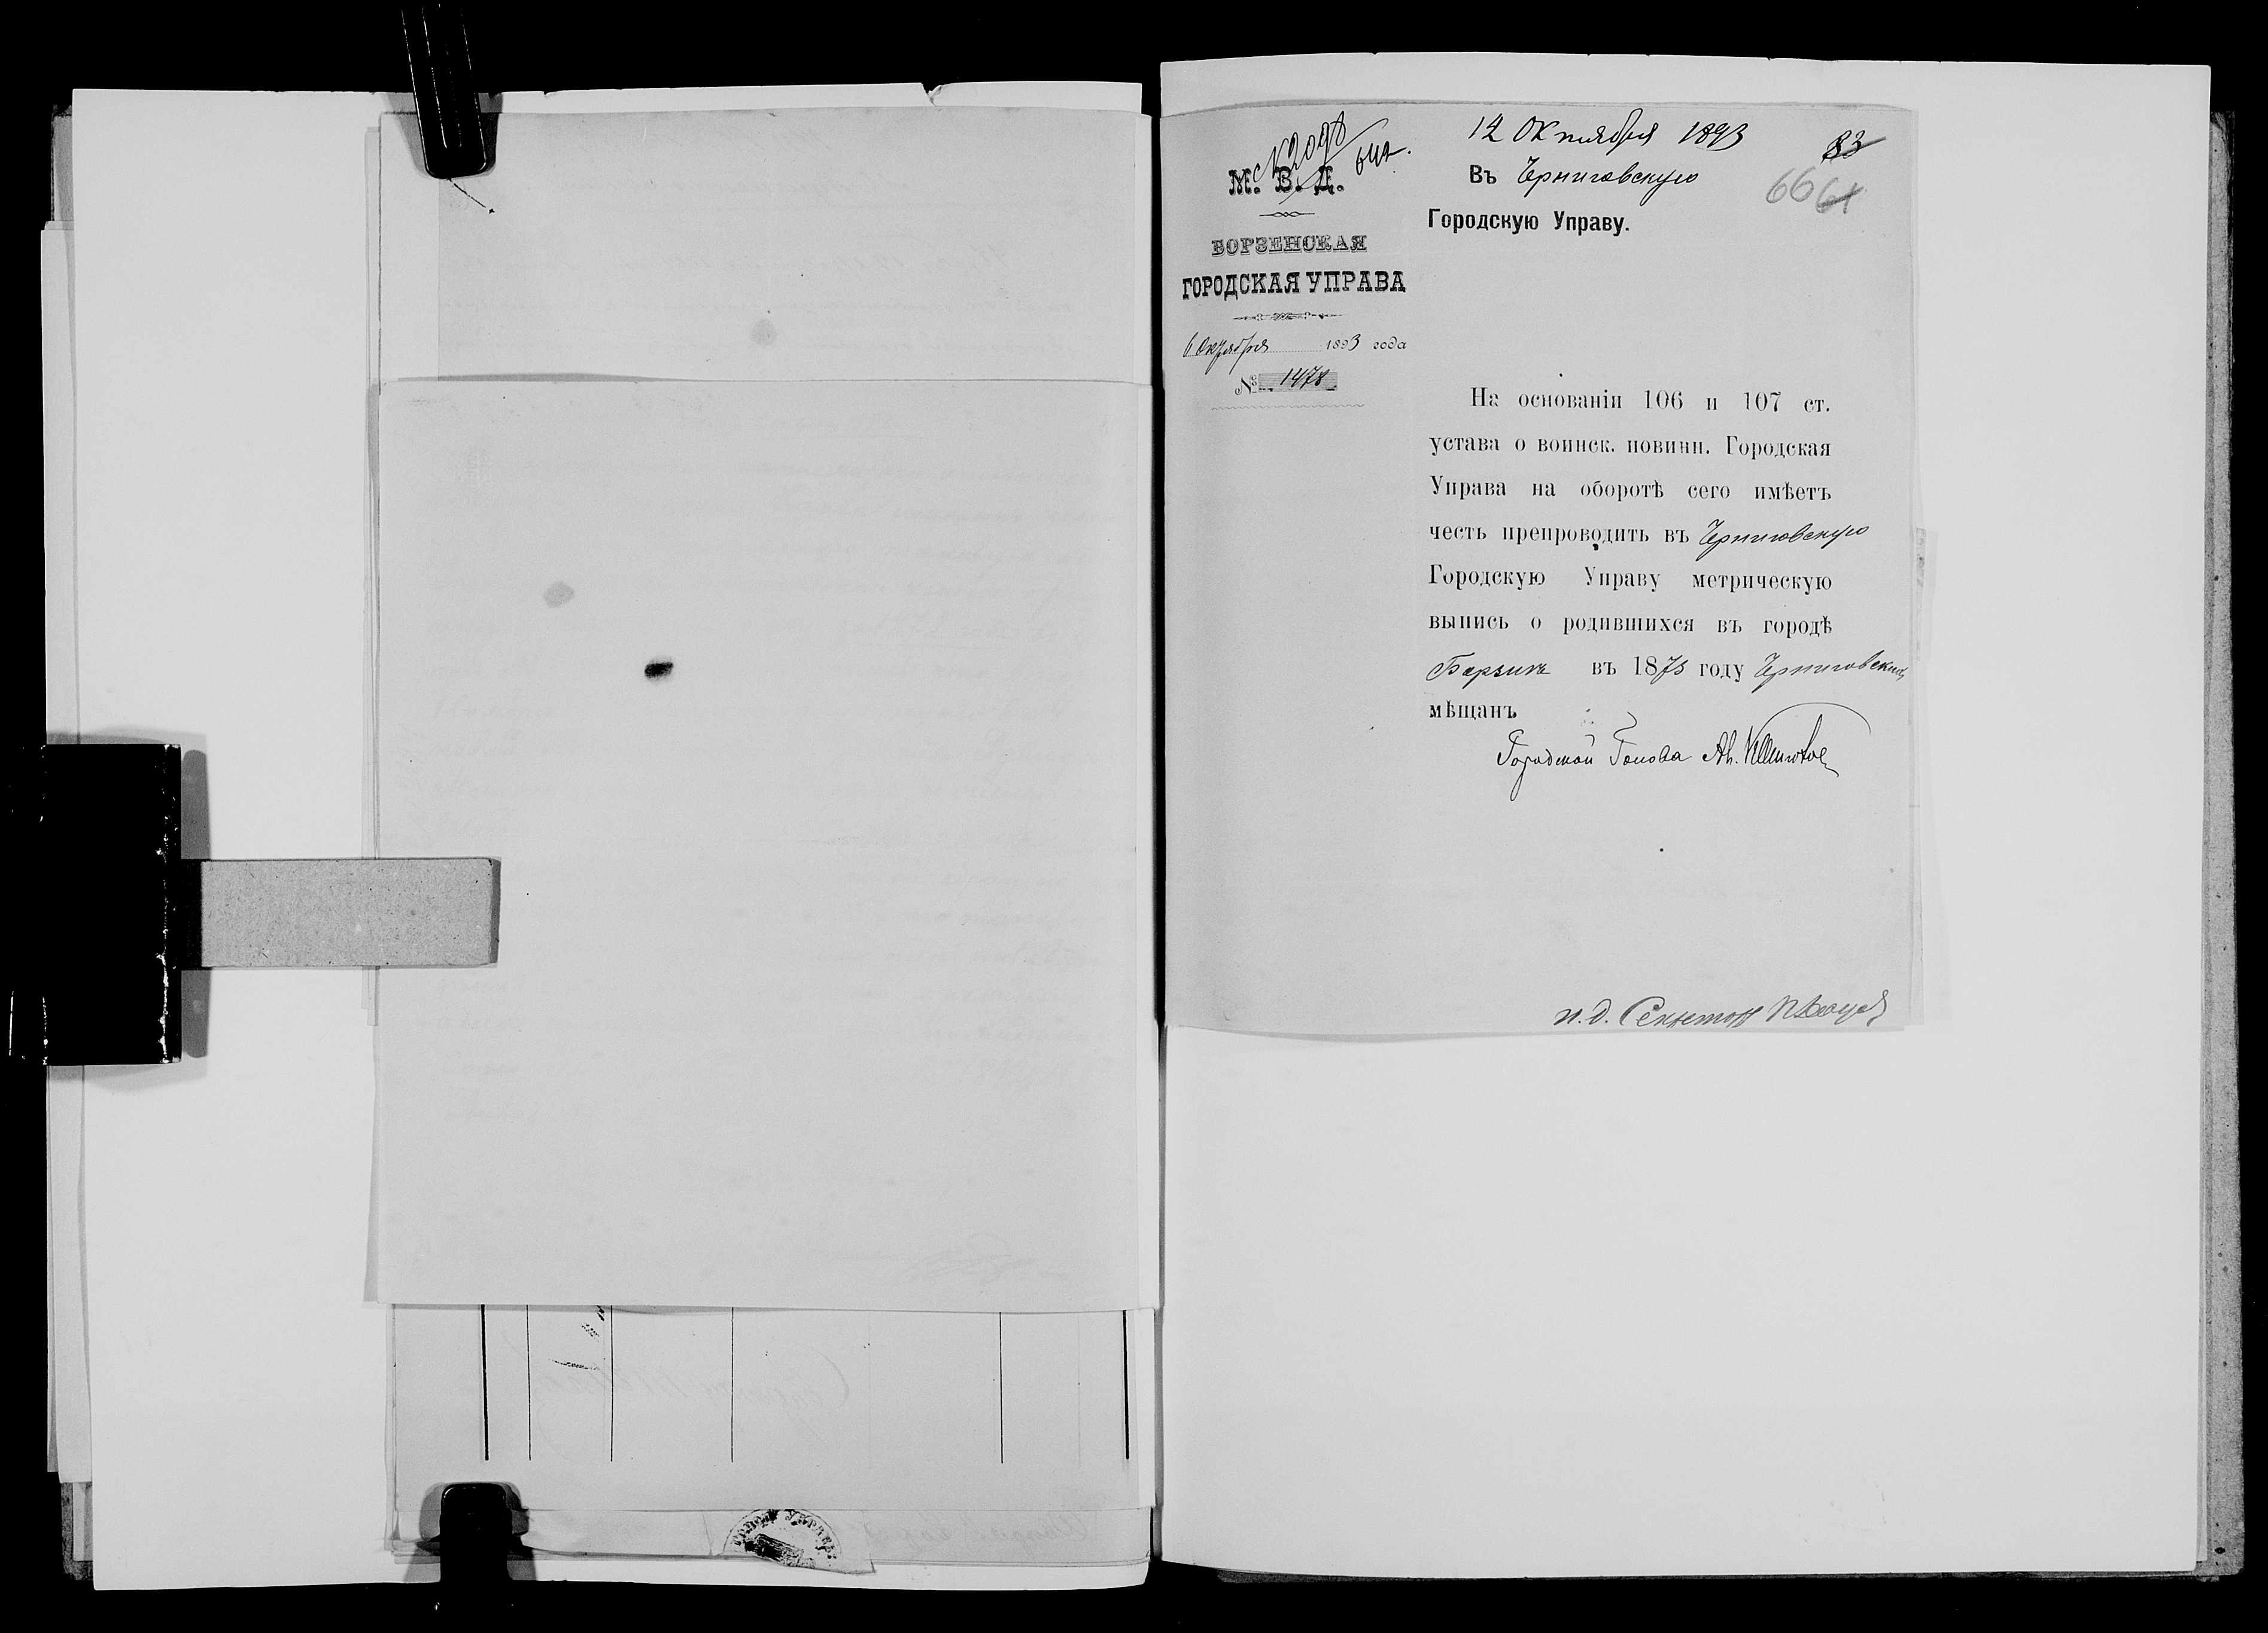 12 Октября 1893
83
66 61
М. В. Д.
Въ Черниговскую
Городскую Управу.
БОРЗЕНСКАЯ
ГОРОДСКАЯ УПРАВА
6 Октября 1893 года
№ 1478
На основаніи 106 и 107 ст.
устава о воинск. повинн. Городская
Управа на оборотѣ сего имѣетъ
честь препроводить въ Черниговскую
Городскую Управу метрическую
выпись о родившихся въ городѣ
Борзнѣ въ 1873 году Черниговских
мѣщанъ
Городской Голова
и. д. Секретаря